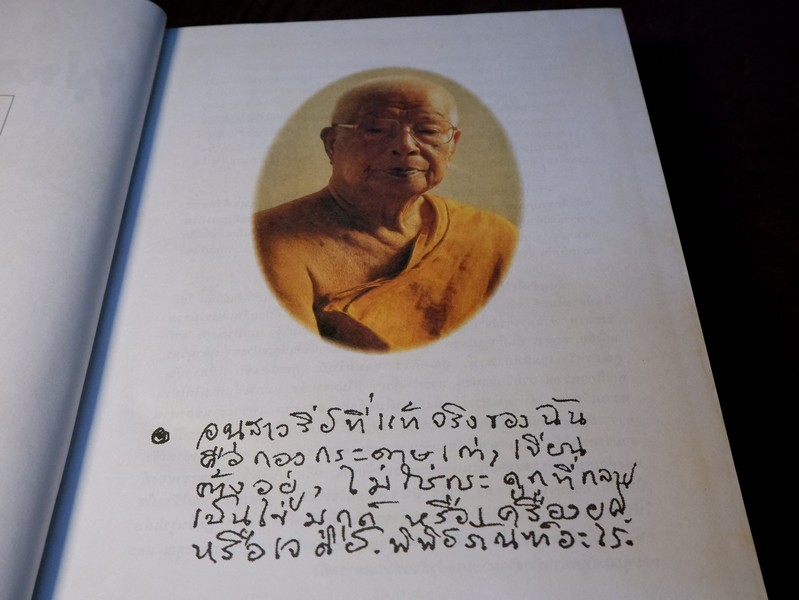 อนุสาวรีย์ที่แท้จริงของฉัน
คือกองกระดาษเก่า, เขียน
ทิ้งอยู่, ไม่ใช่กระดูกที่กลาย
เป็นไข่มุกด์ หรือเครื่องยศ
หรือเจดีย์. พิพิธภัณฑ์อะไร.